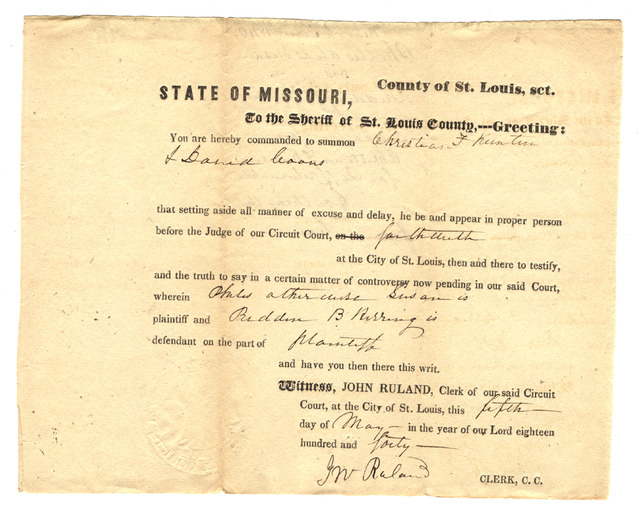 County of St. Louis, sct.
STATE OF MISSOURI,
To the Sheriff of St. Louis County,---Greeting:
You are hereby commanded to summon Christian F
& David Coons
that setting aside all manner of excuse and delay, he be and appear in proper person
before the Judge of our Circuit Court, on the forthwith
at the City of St. Louis, then and there to testify,
and the truth to say in a certain matter of controversy now pending in our said Court,
wherein otherwise Susan is
plaintiff and Redden B. Herring is
defendant on the part of plaintiff
and have you then there this writ.
Witness, JOHN RULAND, Clerk of our said Circuit
Court, at the City of St. Louis, this fifth
day of May in the year of our Lord eighteen
hundred and forty
Ruland
CLERK, C. C.